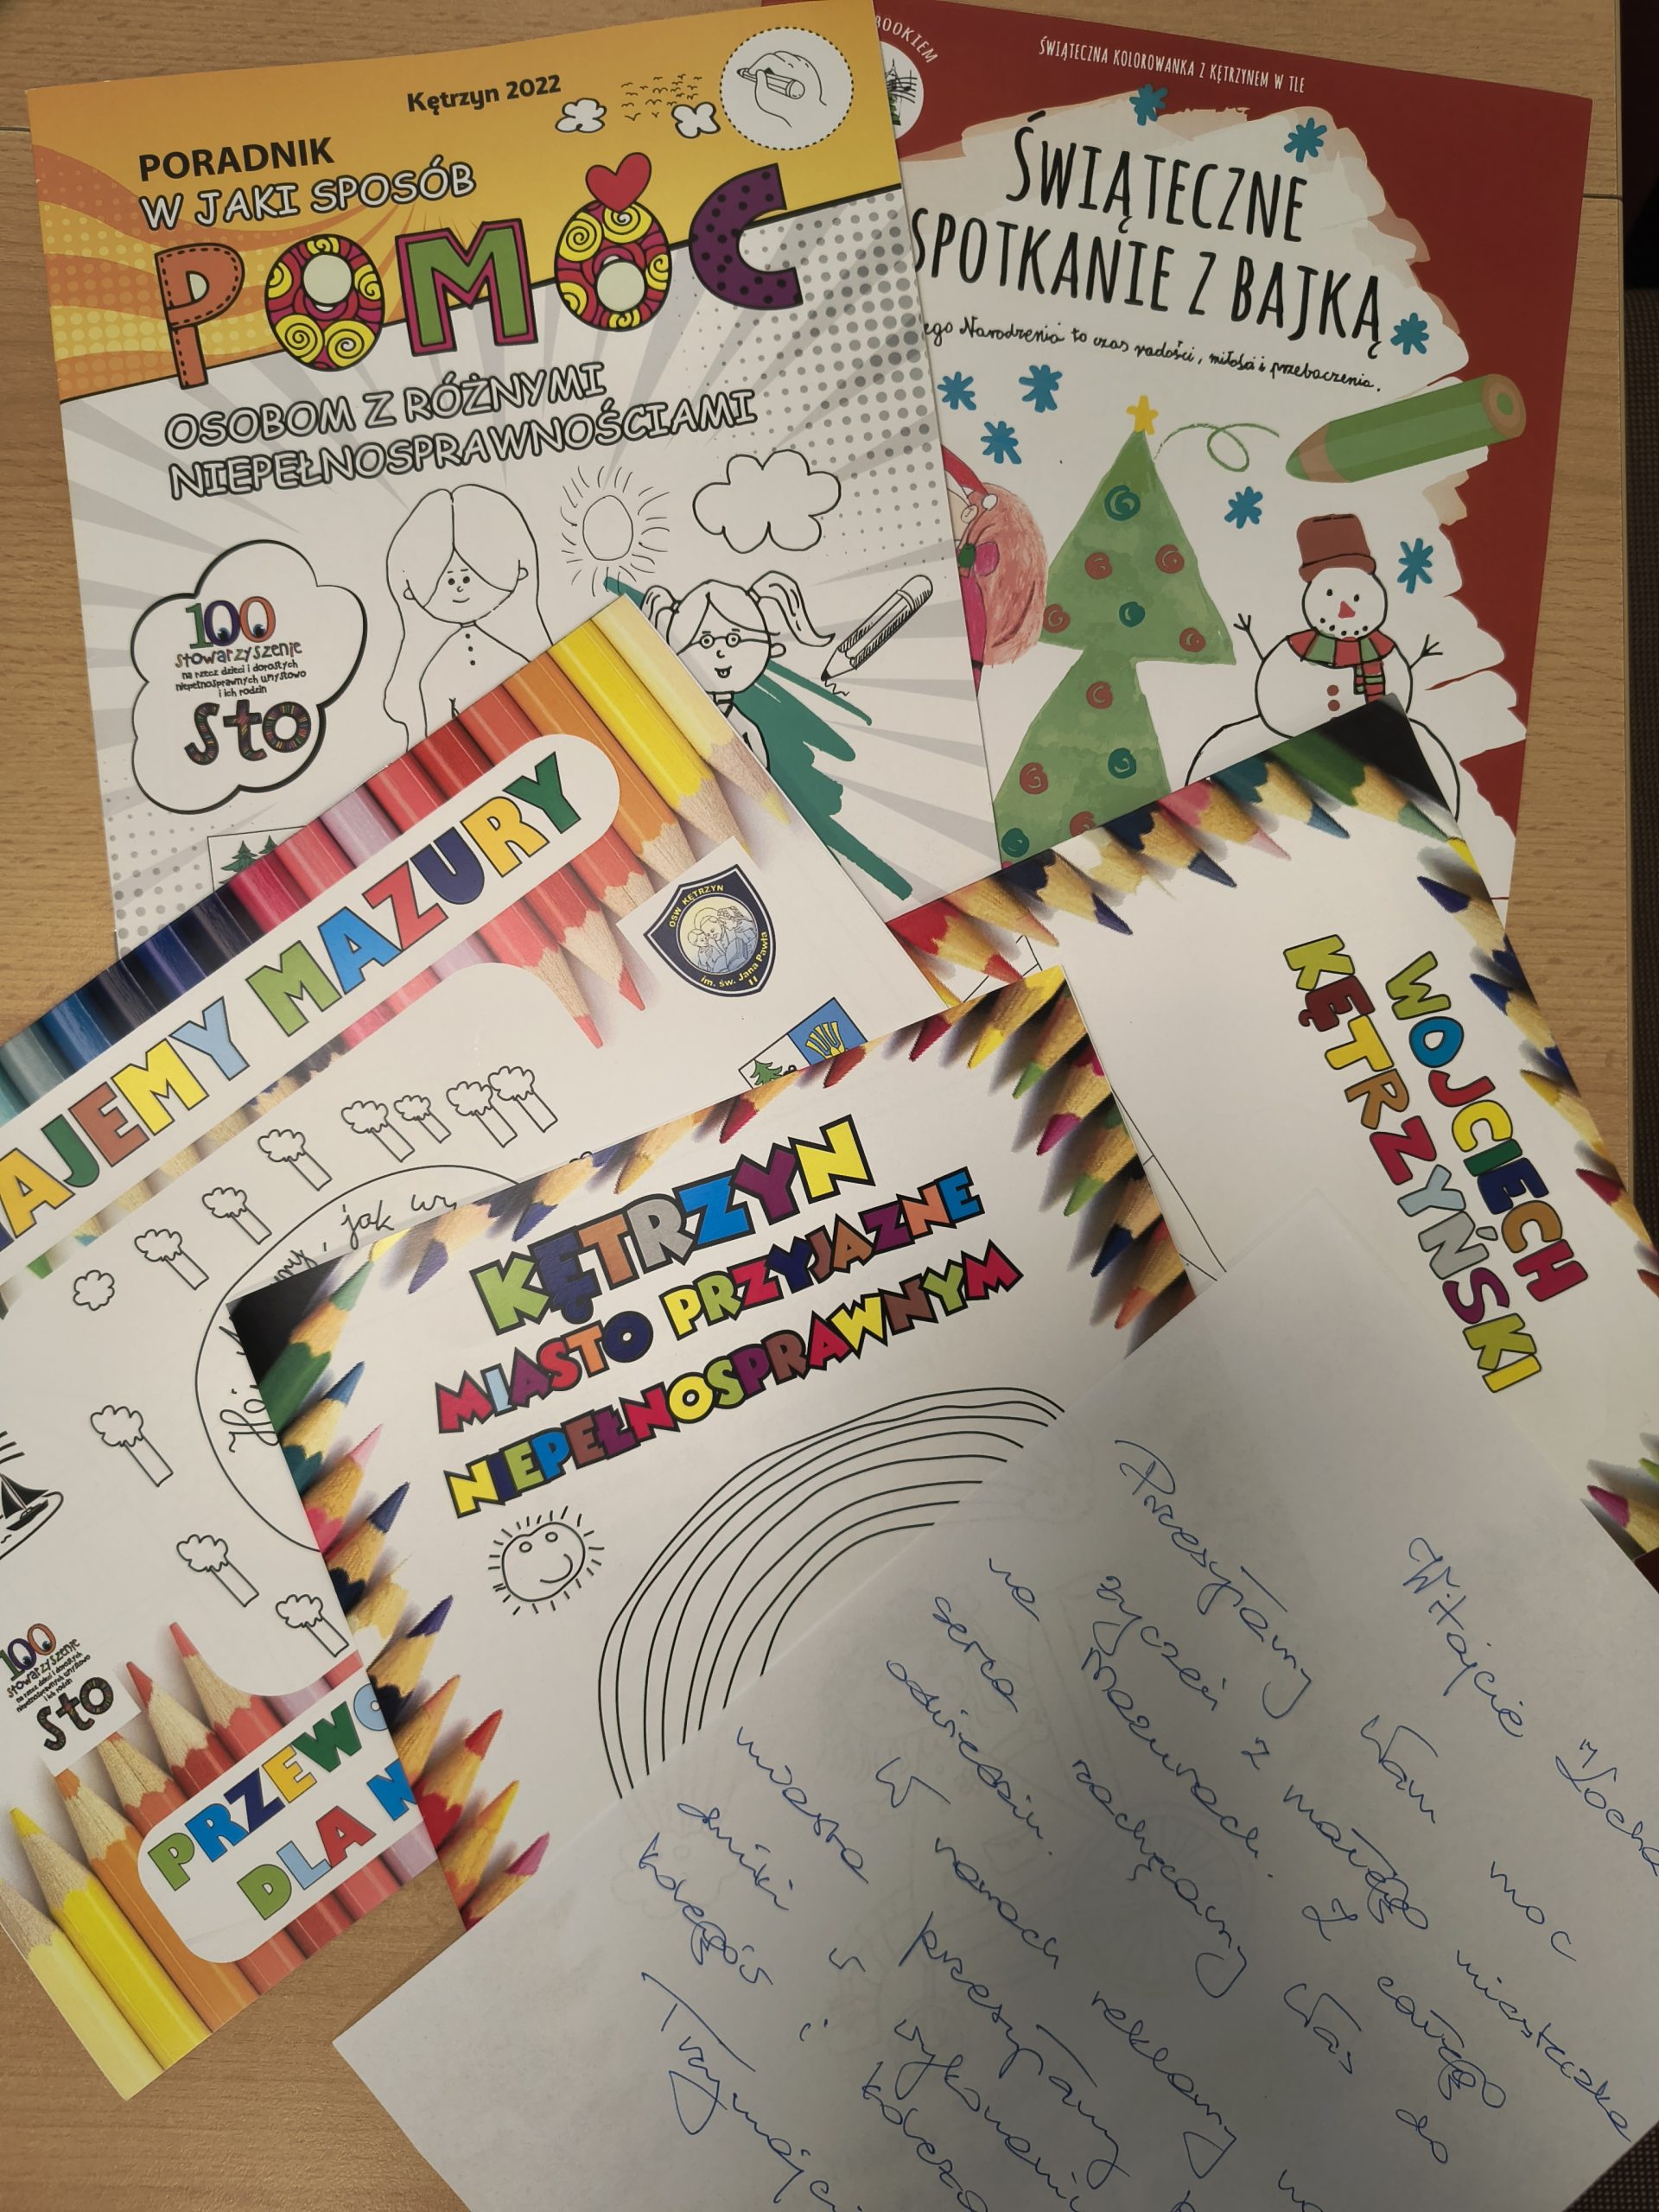 Kętrzyn 2022
PORADNIK
W JAKI SPOSÓB
POMÓC
OSOBOM Z RÓŻNYMI
NIEPEŁNOSPRAWNOŚCIAMI
100
stowarzyszenie
na rzecz dzieci i dorosłych
niepełnosprawnych umysłowo
i ich rodzin
sto
BOOKIEM
ŚWIĄTECZNA KOLOROWANKA Z KĘTRZYNEM W TLE
ŚWIĄTECZNE
SPOTKANIE Z BAJKĄ
ego Narodzenia to czas radości, miłości i przebaczenia.
AJEMY MAZURY
OSW KĘTRZYN
im. św. Jana Pawła
II
jak
100
stowarzyszenie
na rzecz dzieci i dorosłych
niepełnosprawnych umysłowo
i ich rodzin
sto
PRZEWO
DLA N
KĘTRZYN
MIASTO PRZYJAZNE
NIEPEŁNOSPRAWNYM
WOJCIECH
KĘTRZYŃSKI
Witajcie
Przesyłamy Wam moc
życzeń z małego miasteczka
na Mazurach. Z całego
serca zachęcamy Was do
odwiedzin.
W ramach reklamy
miasta przesyłamy
w
i